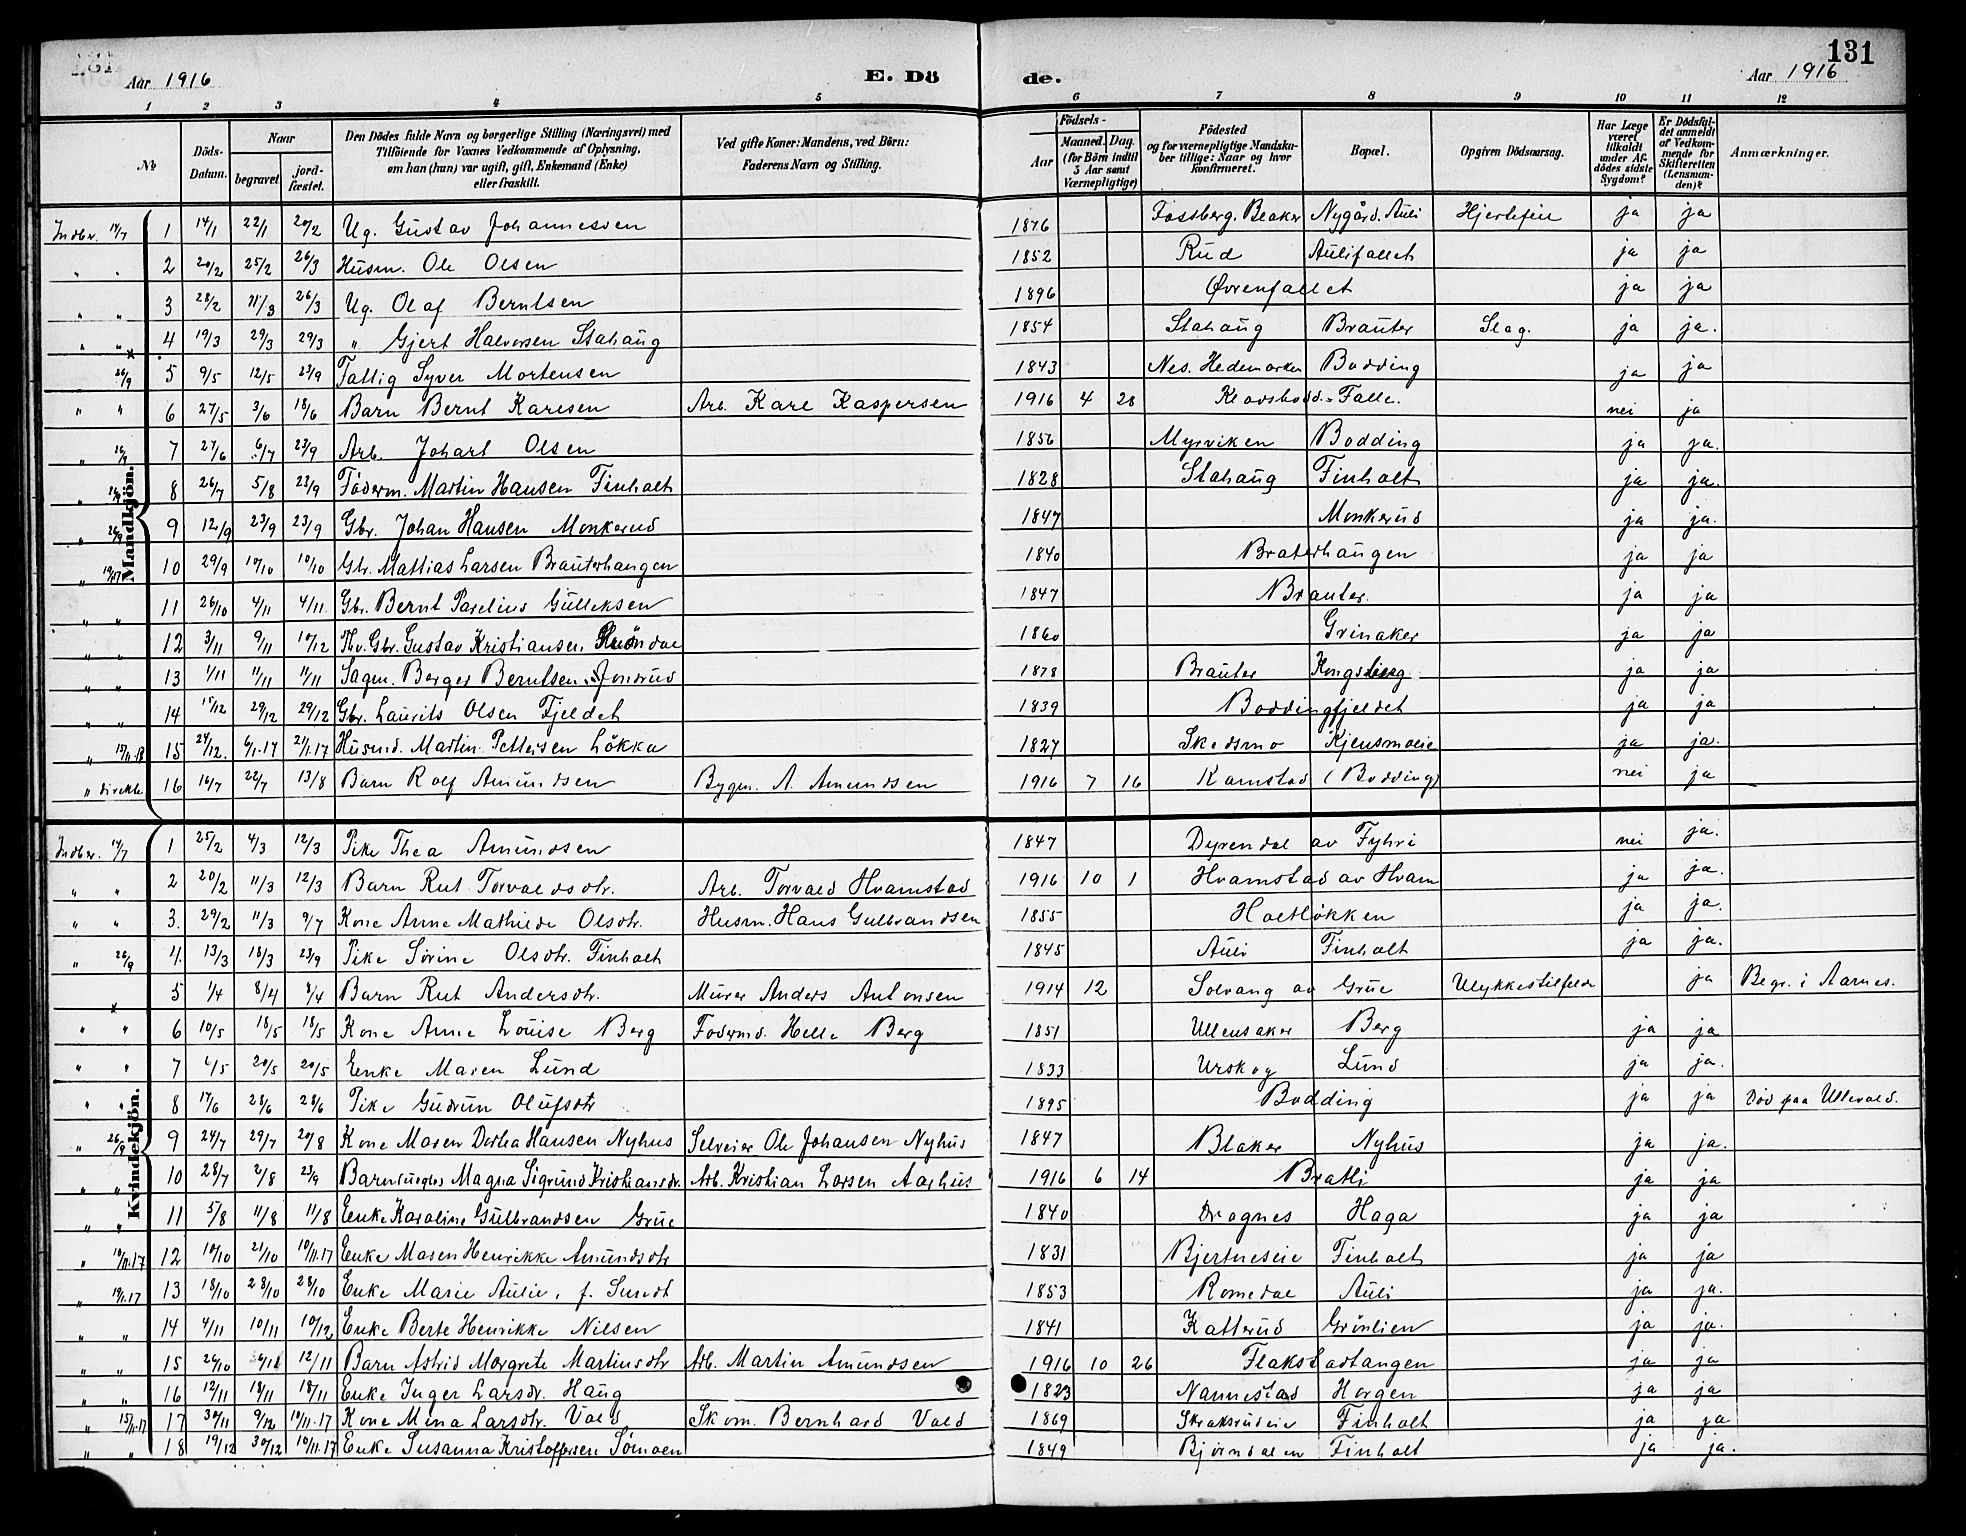 131
Aar 1916 E. Dö de. Aar 1916
1 2 3 4 5 6 7 8 9 10 11 12
No Döds-Datum. Naar begravet jord-fæstet. Den Dödes fulde Navn og borgerlige Stilling (Næringsvei) med Tilföiende for Voxnes Vedkommende af Oplysning, om han (hun) var ugift, gift, Enkemand (Enke) eller fraskilt. Ved gifte Koner: Mandens, ved Börn: Faderens Navn og Stilling. Födsels- Aar Maaned. Dag. (for Börn indtil 3 Aar samt Værnepligtige) Födested og for værnepligtige Mandskaber tillige: Naar og hvor konfirmeret. Bopæl. Opgiven Dödsaarsag. Har Læge været tilkaldt under Afdödes sidste Sygdom? Er Dödsfaldet anmeldt af Vedkommende for Skifteretten (Lensmanden)? Anmærkninger.
Mandkjön.
Indbr. 14/7 1 14/1 22/1 20/2 Ug. Gustav Johannessen 1876 Fossberg, Blaker Nygård. Auli Hjertefeil ja ja
" " 2 20/2 25/2 26/3 Husm. Ole Olsen 1852 Rud Aulifallet ja ja
" " 3 28/2 11/3 26/3 Ug. Olaf Berntsen 1896 Øvrenfallet ja ja
" " 4 19/3 29/3 29/3 " Gjert Halvorsen Stahaug 1854 Stahaug Brauter Slag. ja ja.
" 26/9 5 9/5 12/5 23/9 Fattig Syver Mortensen 1843 Nes. Hedemarken Bodding ja ja
" " 6 27/5 3/6 18/6 Barn Bernt Karlsen Arb. Karl Kaspersen 1916 4 28 Falle. nei ja
" 26/9 7 27/6 6/7 23/9 Arb. Johart Olsen 1856 Myrviken Bodding ja ja.
" 26/9 8 26/7 5/8 23/9 Föderm. Martin Hansen Finholt 1828 Stahaug Finholt ja ja.
" 26/9 9 12/9 23/9 23/9 Gbr. Johan Hansen Monkerud 1847 Monkerud ja ja.
" 10 29/9 10/10 10/10 Gbr. Mattias Larsen Brauterhaugen 1840 Braterhaugen ja ja
" " 11 26/10 4/11 4/11. Gbr. Bernt Parelius Gulleksen 1847 Brauter. ja ja
" " 12 3/11 9/11 10/12 Fhv. Gbr. Gustav Kristiansen 1860 Grinaker ja ja
" " 13 1/11 11/11 11/11 Sagm. Berger Berntsen Jonsrud 1878 Brauter Kongsberg ja ja
" " 14 15/12 29/12 29/12 Gbr. Laurits Olsen Fjeldet 1839 Boddingfjeldet ja ja
" 15 24/12. 6/1.17 21/1.17 Husmd. Martin Pettersen Lökka 1827 Skedsmo Kjensmoeie ja ja.
" direkte 16 16/7 22/7 13/8 Barn Rolf Amundsen Bygm. A. Amundsen 1916 7 16 Kamstad (Bodding) nei ja
Kvindekjön.
Indber. 14/7 1 25/2 4/3 12/3 Pike Thea Amundsen 1847 Dyrendal av Fyhri nei ja.
" " 2 20/2 11/3 12/3 Barn Rut Torvaldsdtr. Arb. Torvald Hvamstad 1916 10 1 Hvamstad av Hvam ja ja.
" " 3. 29/2 11/3 9/7 Kone Anne Mathilde Olsdtr. Husm. Hans Gulbrandsen 1855 Holtløkken ja ja.
" 26/9 4. 13/3 18/3 23/9 Pike Sörine Olsdtr. Finholt 1845 Auli Finholt ja ja.
5 1/4 8/4 8/4 Barn Rut Andersdtr. Murer Anders Antonsen 1914 12 Solvang av Grue Ulykkestilfelde ja Begr. i Aarnes.
" " 6 10/5 18/5 18/5 Kone Anne Louise Berg Födermd. Helle Berg 1851 Ullensaker Berg ja ja
" " 7 20/5 20/5 Enke Maren Lund 1833 Urskog Lund ja ja.
" " 8 17/6 28/6 28/6 Pike Gudrun Olufsdtr 1895 Bodding ja ja Död paa Ullevold.
" 26/9 9 24/7 29/7 20/8 Kone Maren Dortha Hansen Nyhus Selveier Ole Johansen Nyhus 1847 Blaker Nyhus ja ja.
" " 10 28/7 2/8 23/9 Barn Magna Sigrund Kristiansdr. Arb. Kristian Larsen Aarhus 1916 6 14 Bratli ja ja
" " 11 5/8 11/8 11/8 Enke Karoline Gulbrandsen Grue 1840 Dragnes Haga ja ja
" 10/11.17 12 10/10 21/10 10/11.17 Enke Maren Henrikke Amundsdtr 1831 Bjertneseie Finholt ja ja
" 19/1.17 13 18/10 28/10 28/10 Enke Marie Aulie, f. Sundt 1853 Romedal Auli ja ja.
" " 14 4/11 10/11 10/12 Enke Berte Henrikke Nilsen 1841 Katterud Grönlien ja ja.
" " 15 26/10 12/11 Barn Astrid Margrete Martinsdtr Arb. Martin Amundsen 1916 10 26 Flakstadtangen ja ja
" " 16 12/11 18/11 18/11 Enke Inger Larsdr. Haug 1823 Nannestad Horgen ja ja
" 15/11.17 17 30/11 9/12 10/11.17 Kone Mina Larsdtr. Vold Skom. Bernhard Vold 1869 Skraksrudeie Finholt ja ja
" " 18 19/12 30/12 10/11.17 Enke Susanna Kristoffersen Sömoen 1849 Bjørndalen Finholt ja ja.